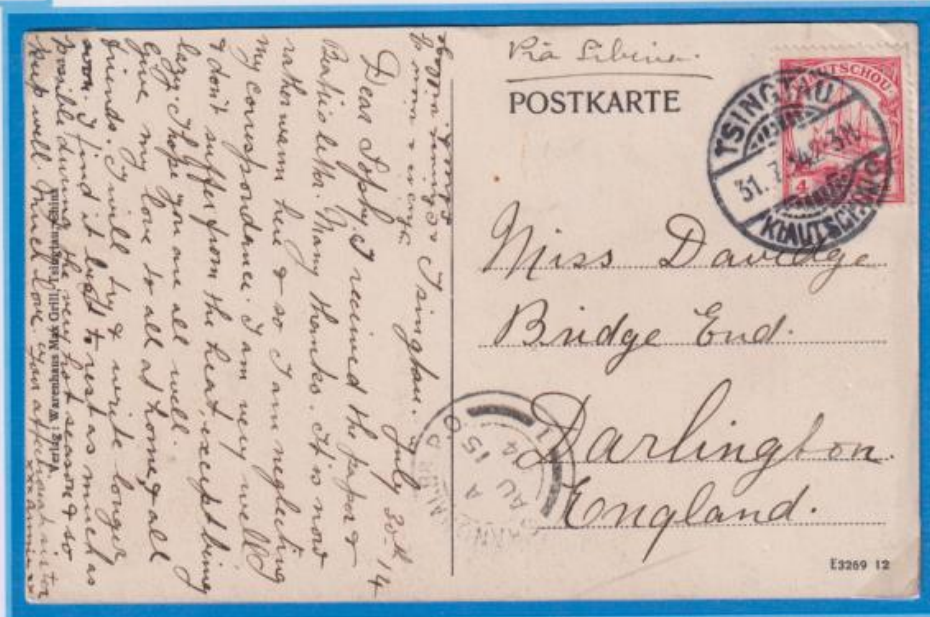 Via Siberia.
POSTKARTE
KIAUTSCHOU
4
TSINGTAU
31.7.14
KIAUTSCHOU
Miss Davidge
Bridge End.
Darlington.
England.
E3269 12
Verlag: Warenhaus Max Grill, Tsingtau, China
AU 15
14
Tsingtau. July 30th 14
Dear Poppy. I received the paper &
Many thanks. It is now
rather warm here & so I am neglecting
my correspondence. I am very well
& don't suffer from the heat, except being
lazy. I hope you are all well.
Give my love to all at home, & all
friends. I will try & write longer
soon. I find it best to rest as much as
possible during the very hot season & so
keep well. Much love. Your affectionate sister